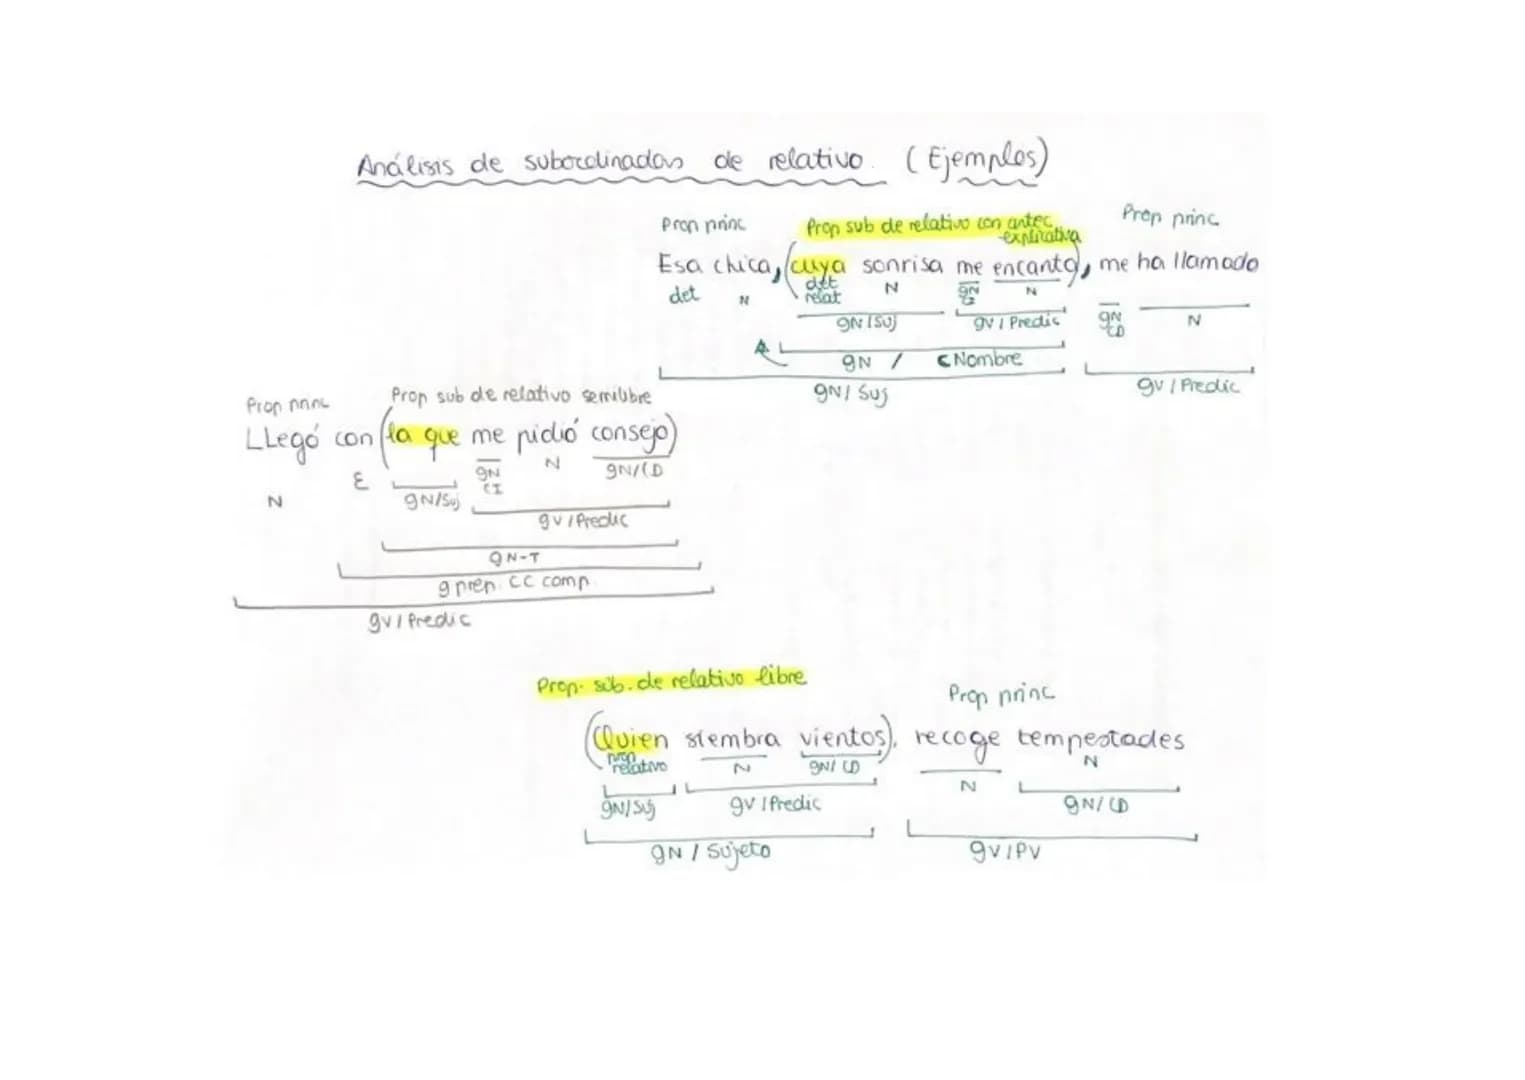 Análisis de subordinadas de relativo. (Ejemplos)
Prop princ Prop sub de relativo con antec Prop princ
explicativa
Esa chica, (cuya sonrisa me encanta), me ha llamado
det N det relat N gN CI N gN CD N
gN/Suj gv / Predic
gN / CNombre
gN/ Suj gv / Predic
Prop princ Prop sub de relativo semilibre
LLegó con (la que me pidió consejo)
N E gN/Suj gN CI N gN/CD
gv / Predic
gN-T
g prep. CC comp.
gv / Predic
Prop. sub. de relativo libre
Prop princ
(Quien siembra vientos), recoge tempestades
pron relativo N gN/ CD N N
gN/Suj gv / Predic gN/ CD
gN / Sujeto gv/PV